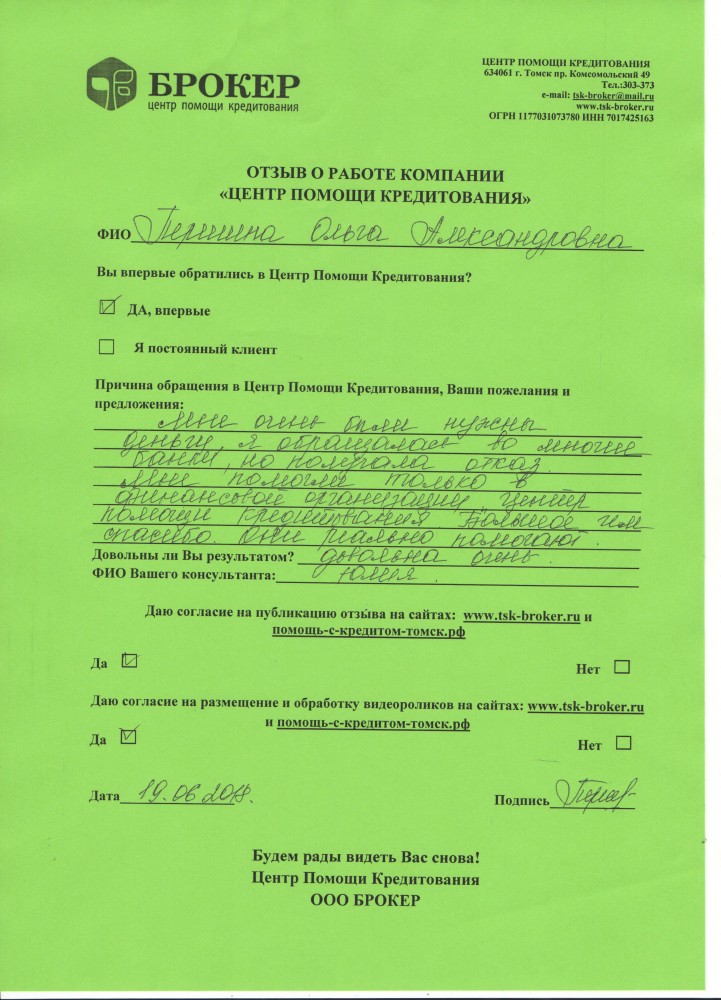 БРОКЕР
центр помощи кредитования
ЦЕНТР ПОМОЩИ КРЕДИТОВАНИЯ
634061 г. Томск пр. Комсомольский 49
Тел.:303-373
e-mail: tsk-broker@mail.ru
www.tsk-broker.ru
ОГРН 1177031073780 ИНН 7017425163
ОТЗЫВ О РАБОТЕ КОМПАНИИ
«ЦЕНТР ПОМОЩИ КРЕДИТОВАНИЯ»
ФИО Першина Ольга Александровна
Вы впервые обратились в Центр Помощи Кредитования?
ДА, впервые
Я постоянный клиент
Причина обращения в Центр Помощи Кредитования, Ваши пожелания и
предложения:
Мне очень были нужны
деньги, я обращалась во многие
банки, но получала отказ.
Мне помогли только в
финансовой организации центр
помощи кредитования. Большое им
спасибо. Они реально помогают.
Довольны ли Вы результатом? довольна очень.
ФИО Вашего консультанта: Юлия.
Даю согласие на публикацию отзыва на сайтах: www.tsk-broker.ru и
помощь-с-кредитом-томск.рф
Да
Нет
Даю согласие на размещение и обработку видеороликов на сайтах: www.tsk-broker.ru
и помощь-с-кредитом-томск.рф
Да
Нет
Дата 19.06.2018.
Подпись
Будем рады видеть Вас снова!
Центр Помощи Кредитования
ООО БРОКЕР